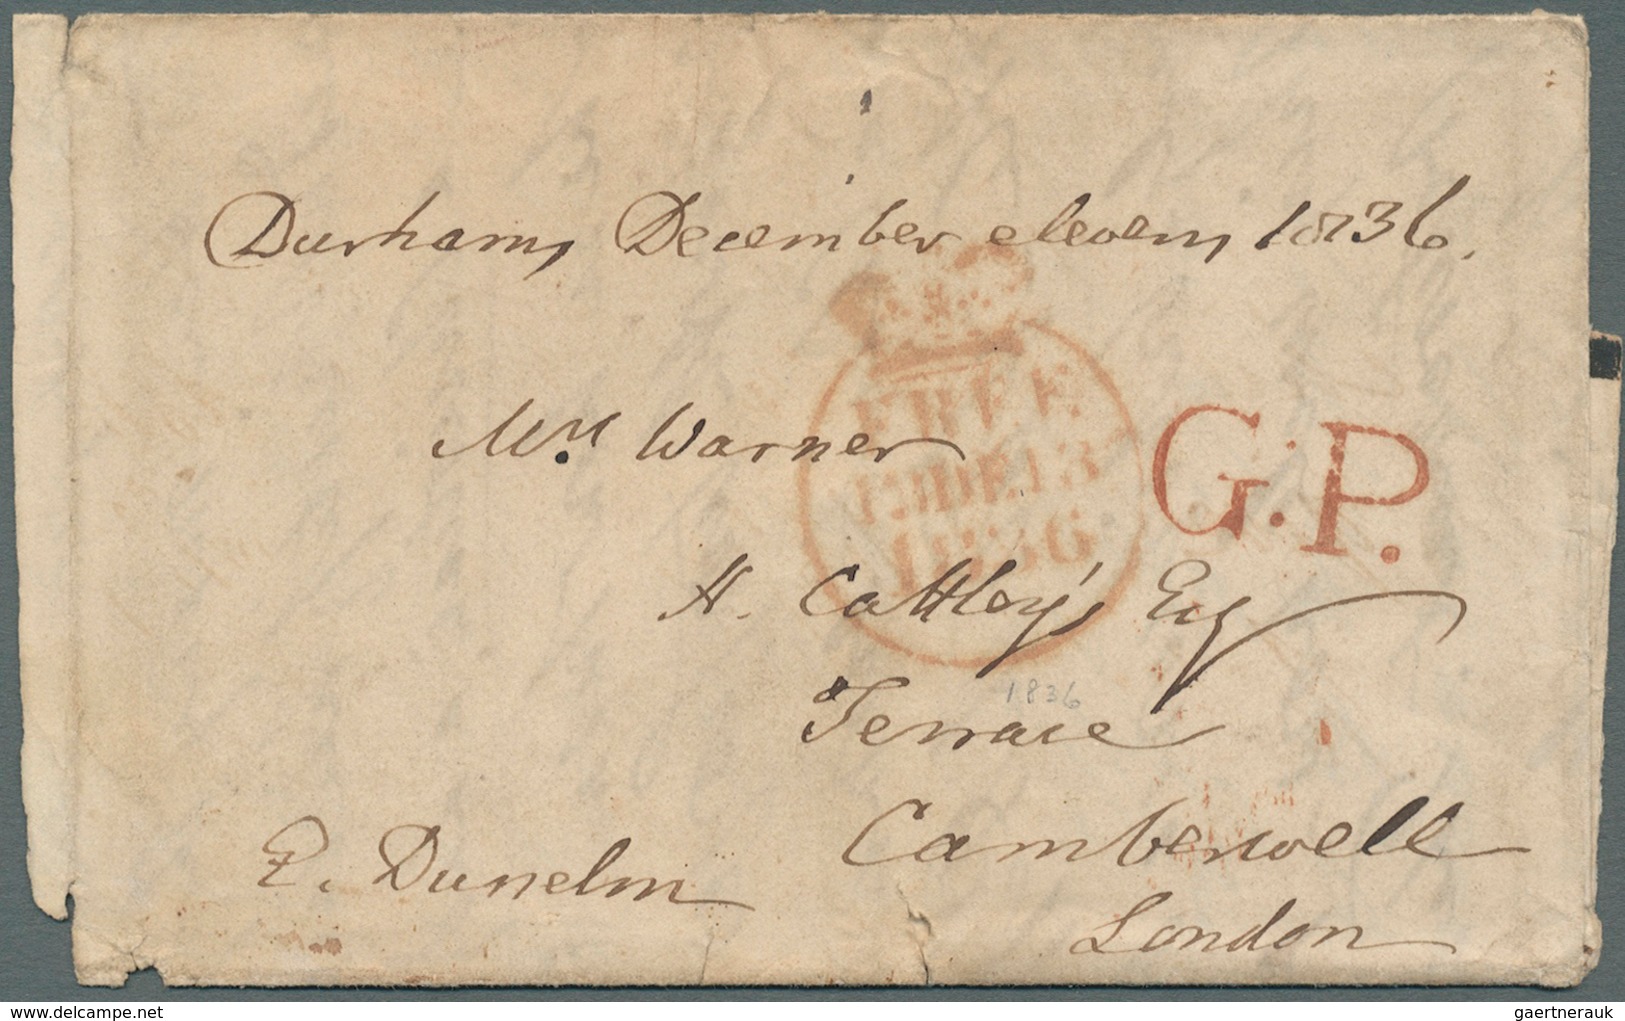 Durham, December eleven, 1836.
FREE
13DE13
1836
G.P.
Mrs Warner
H. Cattley's Esq
1836
Terrace
Camberwell
London
E. Dunelm
www.delcampe.net
gaertnerauk